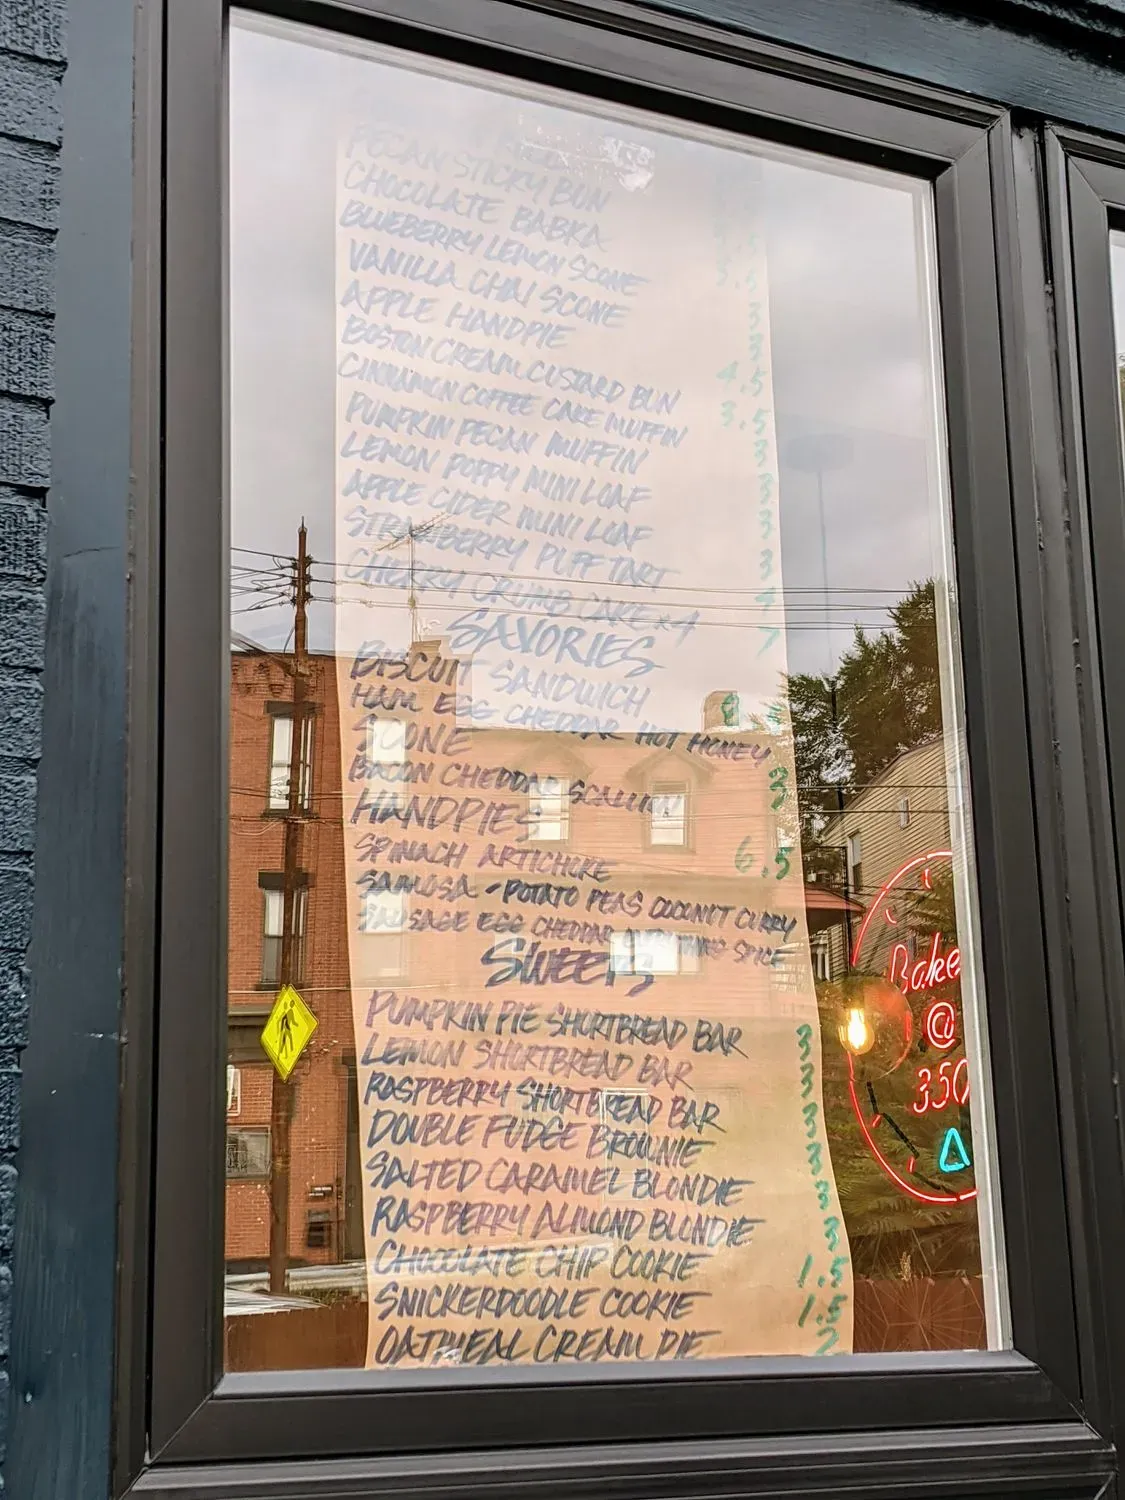 PECAN STICKY BUN
CHOCOLATE BABKA
BLUEBERRY LEMON SCONE 3.5
VANILLA CHAI SCONE 3
APPLE HANDPIE 3
BOSTON CREAM CUSTARD BUN 4.5
CINNAMON COFFEE CAKE MUFFIN 3.5
PUMPKIN PECAN MUFFIN 3
LEMON POPPY MINI LOAF 3
APPLE CIDER MINI LOAF 3
STRAWBERRY PUFF TART 3
CHERRY CRUMB CAKE x4 7
SAVORIES
BISCUIT SANDWICH 8
HAM EGG CHEDDAR HOT HONEY
SCONE 3
BACON CHEDDAR SCALLION
HANDPIES 6.5
SPINACH ARTICHOKE
SAMOSA - POTATO PEAS COCONUT CURRY
SAUSAGE EGG CHEDDAR EVERYTHING SPICE
SWEETS
PUMPKIN PIE SHORTBREAD BAR 3
LEMON SHORTBREAD BAR 3
RASPBERRY SHORTBREAD BAR 3
DOUBLE FUDGE BROWNIE 3
SALTED CARAMEL BLONDIE 3
RASPBERRY ALMOND BLONDIE 3
CHOCOLATE CHIP COOKIE 1.5
SNICKERDOODLE COOKIE 1.5
OATMEAL CREAM PIE 2
Bake
@
350